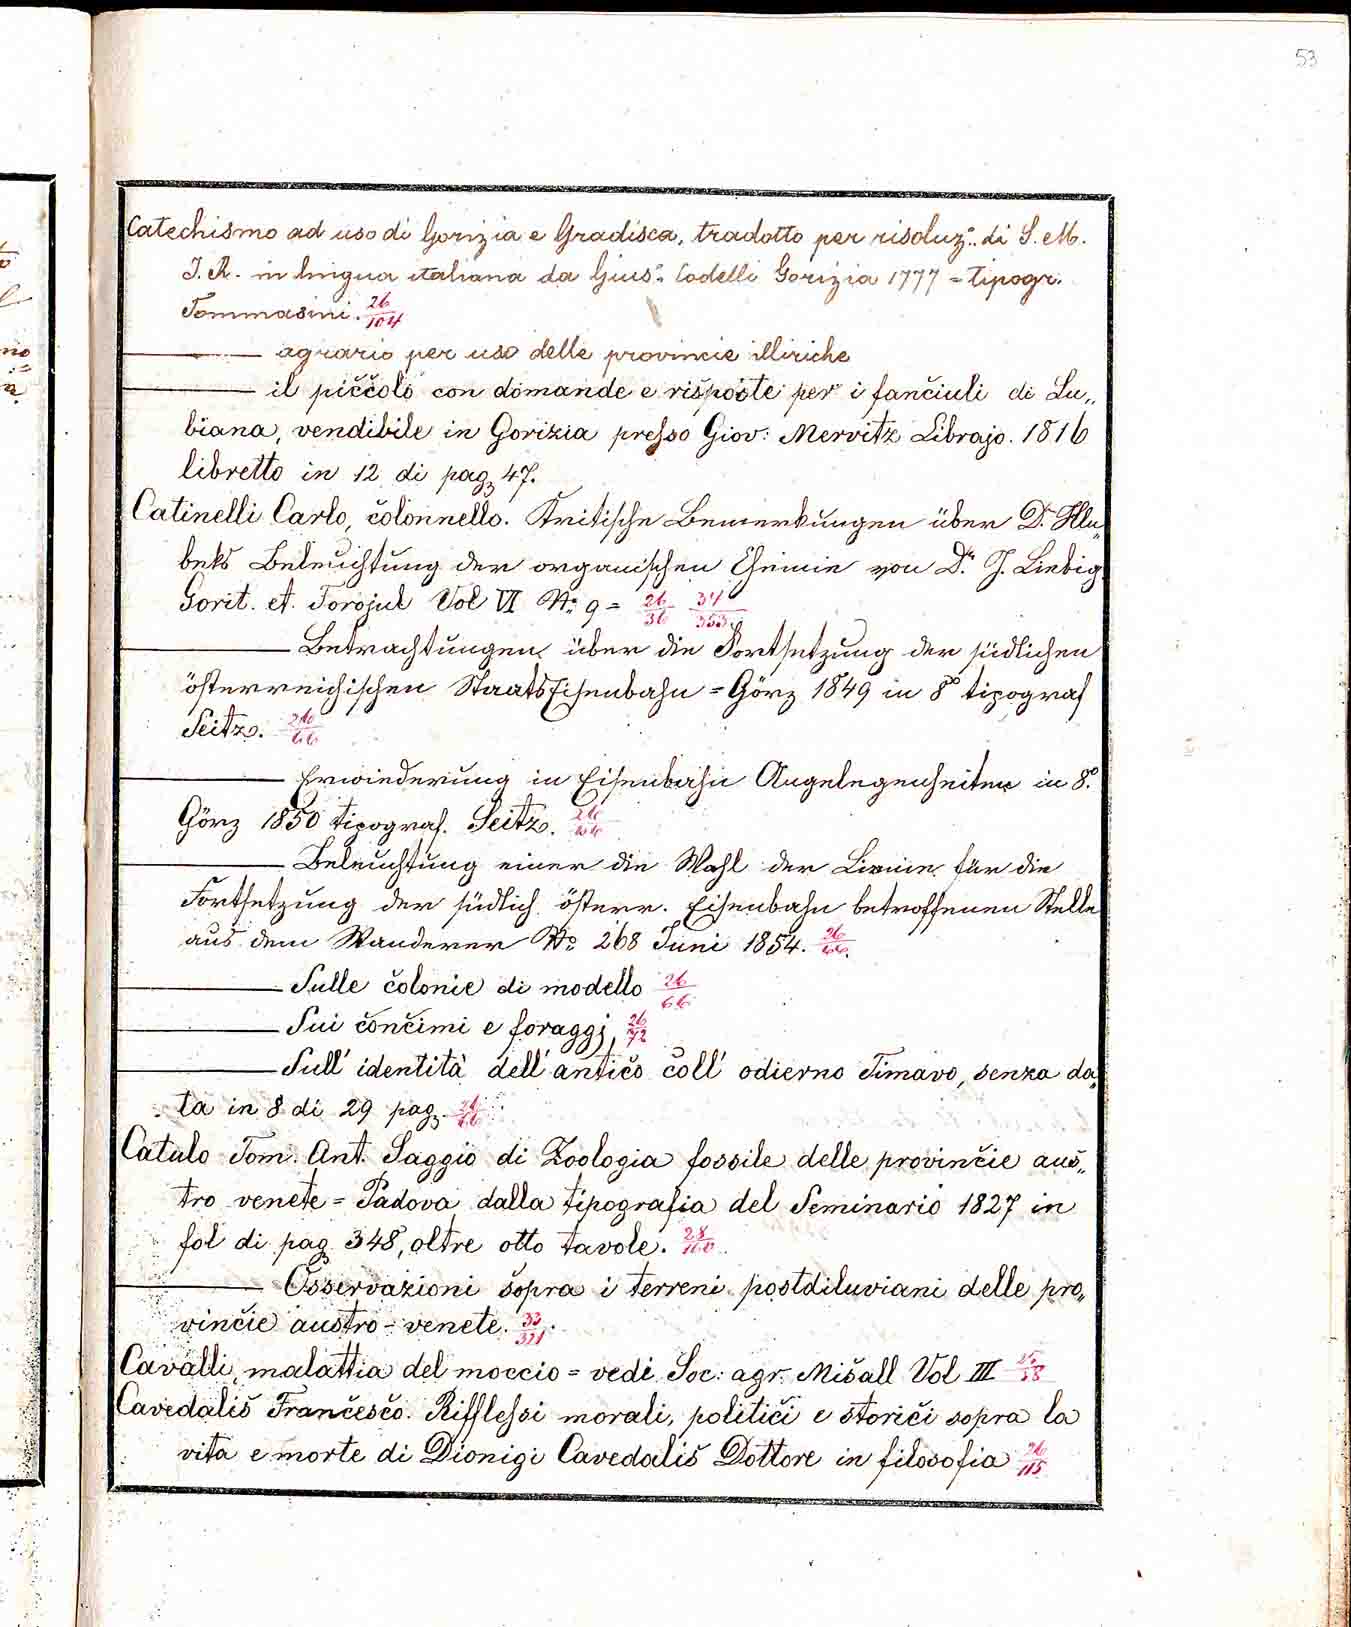 53
Catechismo ad uso di Gorizia e Gradisca, tradotto per risoluz.e di S. M.
I. R. in lingua italiana da Gius.e Codelli Gorizia 1777 = tipogr.
Tommasini. 26/104
——— agrario per uso delle provincie illiriche
——— il piččolo con domande e risposte per i fančiuli di Lu„
biana, vendibile in Gorizia presso Giov: Mervitz Librajo. 1816
libretto in 12 di pag. 47.
Catinelli Carlo, čolonnello. Kritische Bemerkungen über D. Hlu„
beks Beleuchtung der organischen Chemie von Dr. J. Liebig
Gorit. et. Forojul Vol VI No. 9 = 26/36 34/353
——— Betrachtungen über die Fortsetzung der südlichen
österreichischen StaatsEisenbahn = Görz 1849 in 8o tipograf
Seitz. 26/66
——— Erwiederung in Eisenbahn Angelegenheiten in 8o.
Görz 1850 tipograf. Seitz. 26/66
——— Beleuchtung einer die Wahl der Linnie für die
Fortsetzung der südlich österr. Eisenbahn betroffenen Stelle
aus dem Wanderer No. 268 Juni 1854. 26/66.
——— Sulle čolonie di modello 26/66
——— Sui čončimi e foraggj, 26/72
——— Sull' identità dell' antičo čoll' odierno Timavo, senza da„
ta in 8 di 29 pag. 26/66
Catulo Tom. Ant. Saggio di Zoologia fossile delle provinčie aus„
tro venete = Padova dalla tipografia del Seminario 1827 in
fol di pag. 348, oltre otto tavole. 28/160
——— Osservazioni sopra i terreni postdiluviani delle pro„
vinčie austro-venete. 33/321.
Cavalli, malattia del moccio = vedi Soc: agr. Mišall Vol III
Cavedalis Frančesčo. Rifflessi morali, političi e storiči sopra la
vita e morte di Dionigi Cavedalis Dottore in filosofia 26/115